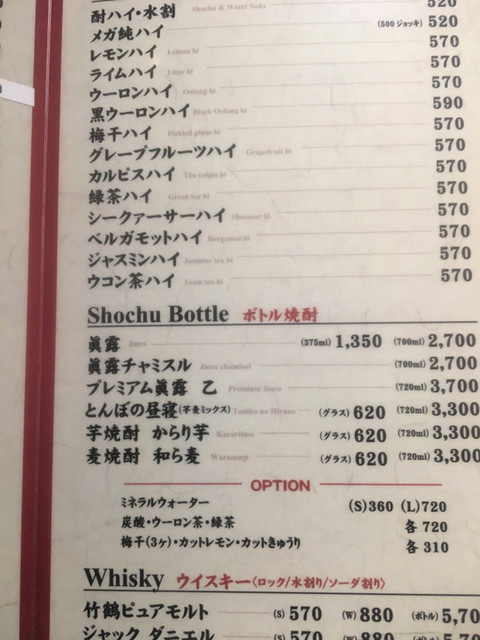 酎ハイ・水割 Shochu & Water Soda 520
メガ純ハイ (500 ジョッキ) 520
レモンハイ Lemon hi 570
ライムハイ Lime hi 570
ウーロンハイ Oolong hi 570
黒ウーロンハイ Black Oolong hi 590
梅干ハイ Pickled plum hi 570
グレープフルーツハイ Grapefruit hi 570
カルピスハイ The calpis hi 570
緑茶ハイ Green tea hi 570
シークァーサーハイ 570
ベルガモットハイ Bergamot hi 570
ジャスミンハイ Jasmine tea hi 570
ウコン茶ハイ Ucon tea hi 570
Shochu Bottle ボトル焼酎
眞露 Jinro (375ml) 1,350 (700ml) 2,700
眞露チャミスル Jinro chamisul (700ml) 2,700
プレミアム眞露 乙 Premium Jinro (720ml) 3,700
とんぼの昼寝(芋麦ミックス) Tombo no Hirune (グラス) 620 (720ml) 3,300
芋焼酎 からり芋 Karariimo (グラス) 620 (720ml) 3,300
麦焼酎 和ら麦 Waramugi (グラス) 620 (720ml) 3,300
OPTION
ミネラルウォーター (S)360 (L)720
炭酸・ウーロン茶・緑茶 各 720
梅干(3ヶ)・カットレモン・カットきゅうり 各 310
Whisky ウイスキー〈ロック/水割り/ソーダ割り〉
竹鶴ピュアモルト (S) 570 (W) 880 (ボトル) 5,70
ジャック ダニエル (S) 570